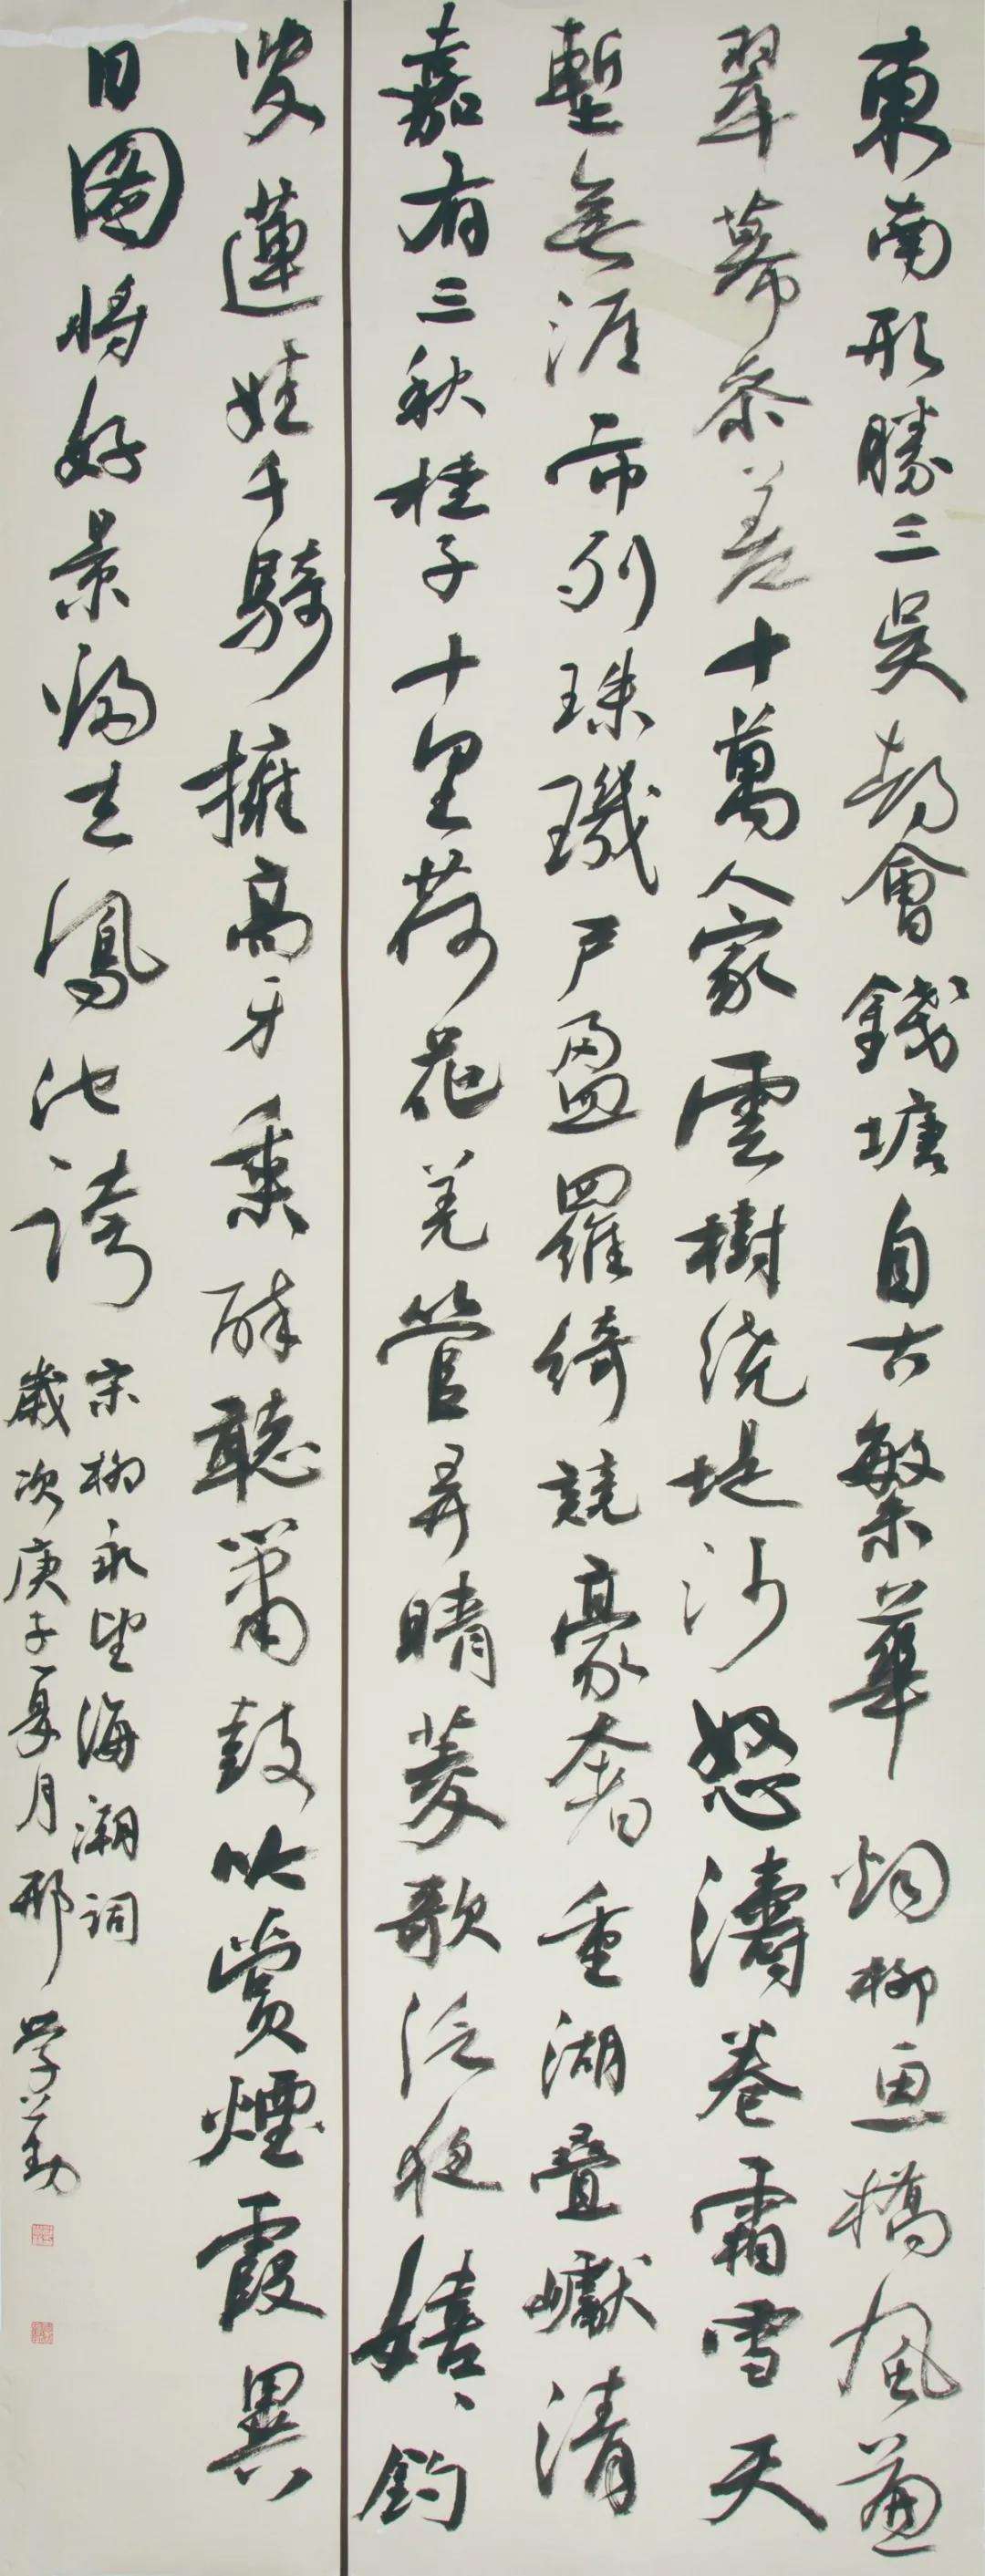 東南形勝三吳都會錢塘自古繁華烟柳畫橋風簾
翠幕參差十萬人家雲樹繞堤沙怒濤卷霜雪天
塹無涯市列珠璣戶盈羅綺競豪奢重湖疊巘清
嘉有三秋桂子十里荷花羌管弄晴菱歌泛夜嬉嬉釣
叟蓮娃千騎擁高牙乘醉聽簫鼓吟賞煙霞異
日圖將好景歸去鳳池誇
宋柳永望海潮詞
歲次庚子夏月邢学勤